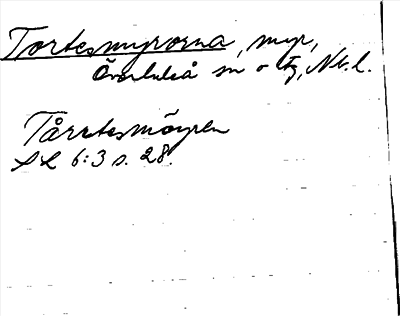 Tortesmyrorna, myr,
Överluleå sn o tg, Nb. l.
Tårtesmöyren
SL 6:3 s. 28.